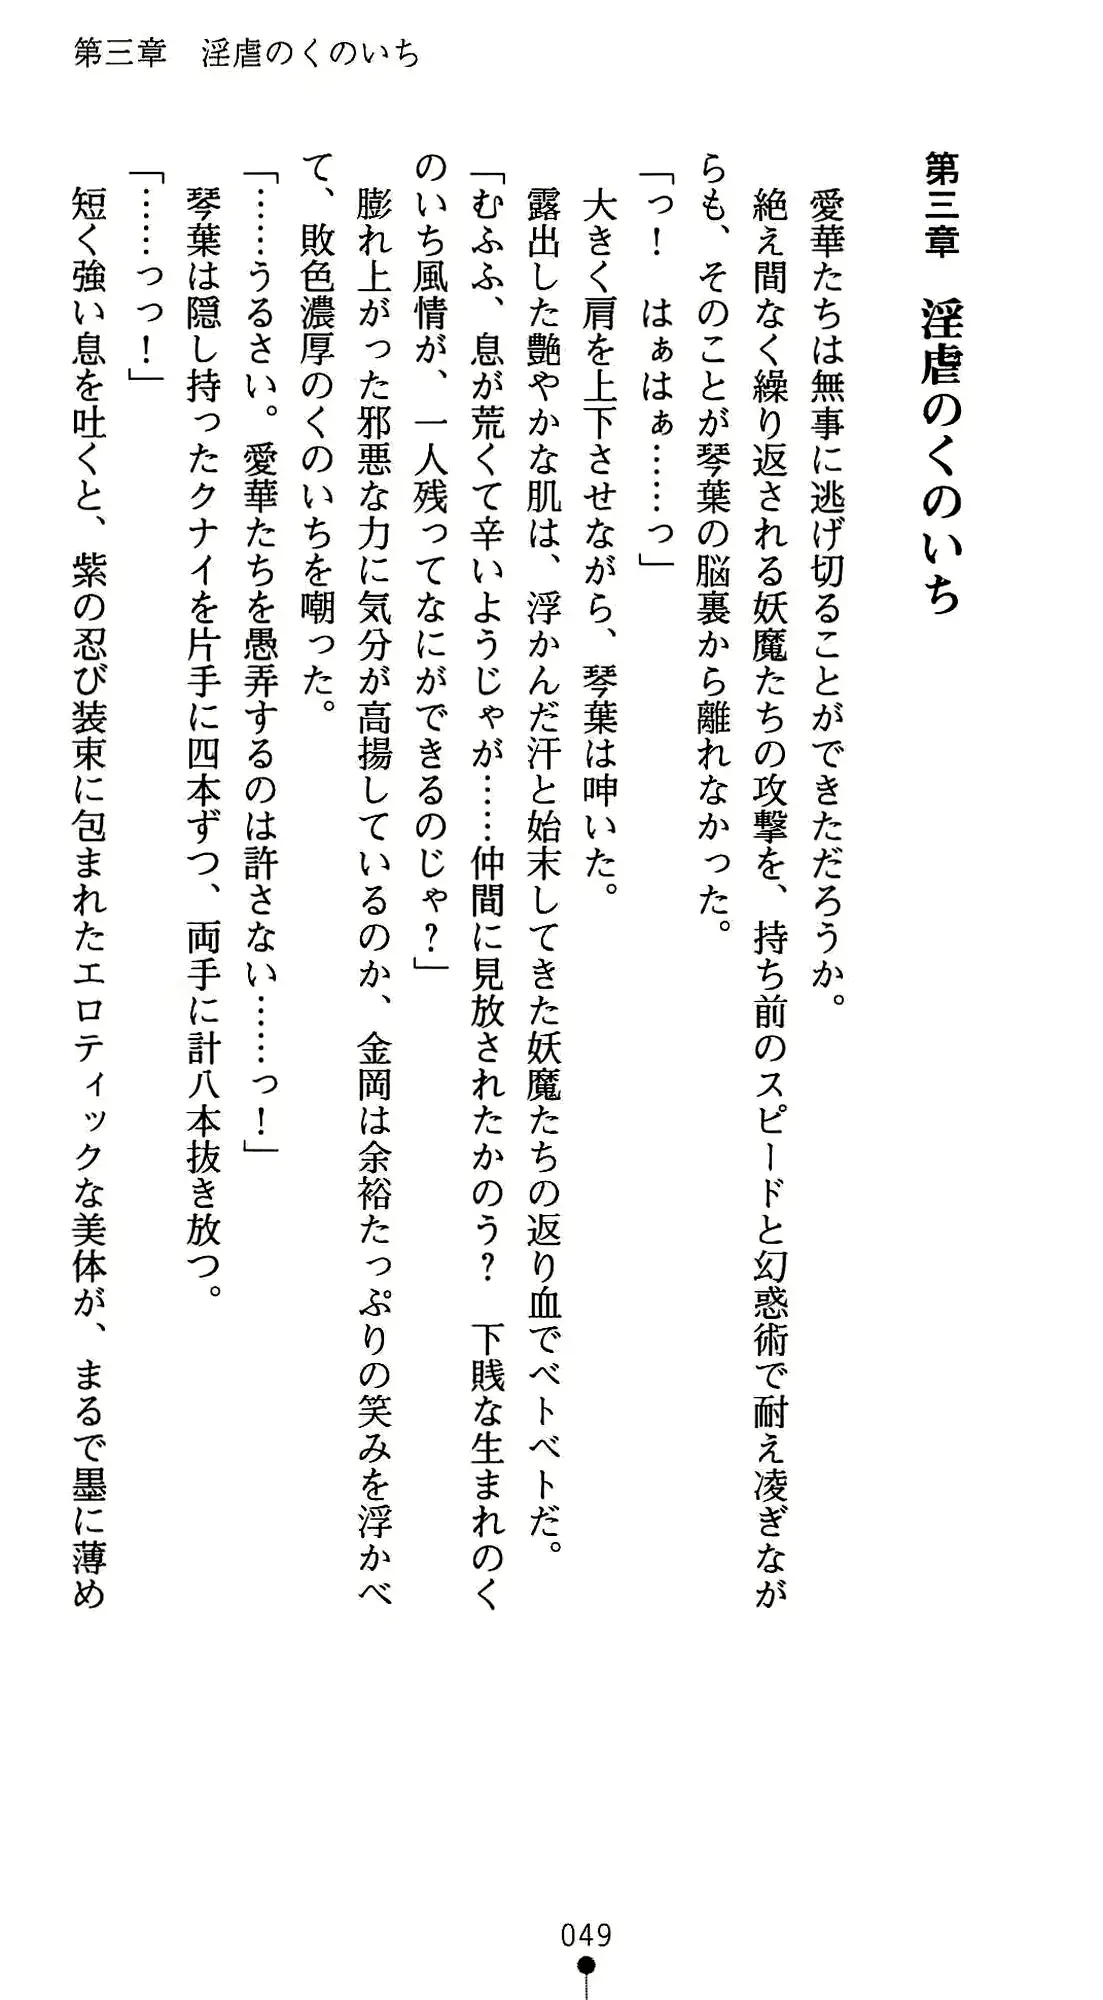 第三章　淫虐のくのいち
第三章　淫虐のくのいち
愛華たちは無事に逃げ切ることができただろうか。
絶え間なく繰り返される妖魔たちの攻撃を、持ち前のスピードと幻惑術で耐え凌ぎなが
らも、そのことが琴葉の脳裏から離れなかった。
「っ！　はぁはぁ……っ」
大きく肩を上下させながら、琴葉は呻いた。
露出した艶やかな肌は、浮かんだ汗と始末してきた妖魔たちの返り血でベトベトだ。
「むふふ、息が荒くて辛いようじゃが……仲間に見放されたかのう？　下賎な生まれのく
のいち風情が、一人残ってなにができるのじゃ？」
膨れ上がった邪悪な力に気分が高揚しているのか、金岡は余裕たっぷりの笑みを浮かべ
て、敗色濃厚のくのいちを嘲った。
「……うるさい。愛華たちを愚弄するのは許さない……っ！」
琴葉は隠し持ったクナイを片手に四本ずつ、両手に計八本抜き放つ。
「……っっ！」
短く強い息を吐くと、紫の忍び装束に包まれたエロティックな美体が、まるで墨に薄め
049